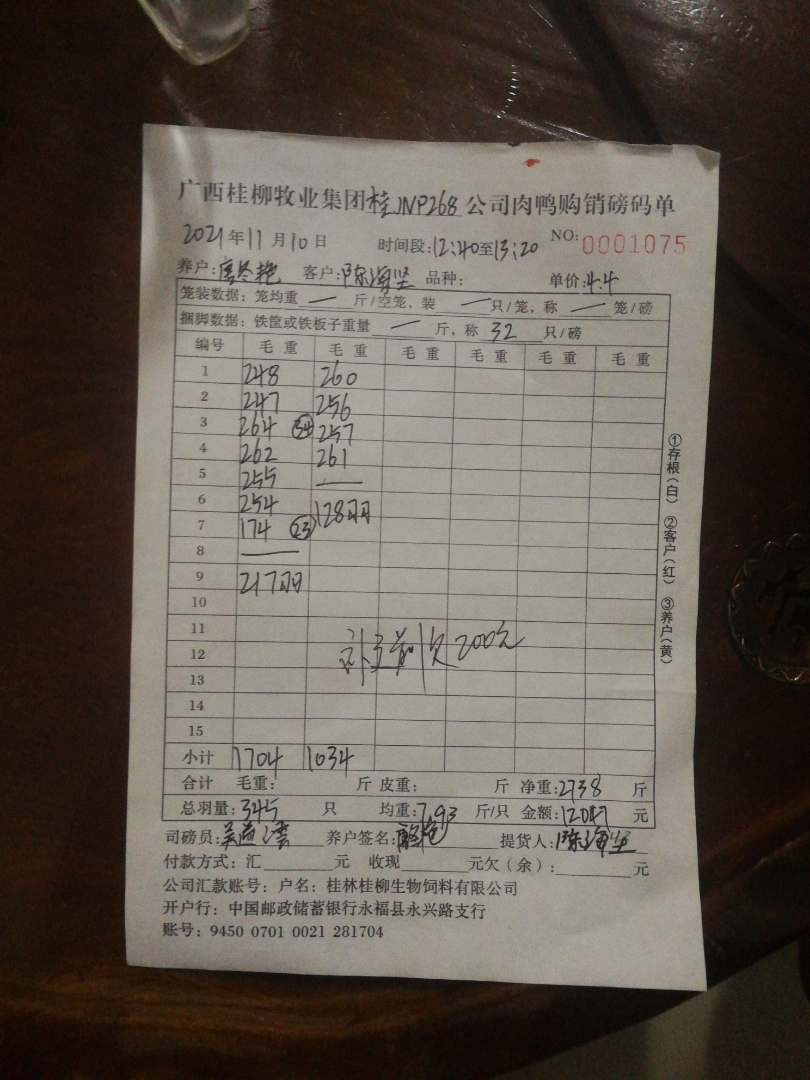 广西桂柳牧业集团桂JNP268公司肉鸭购销磅码单
2021年11月10日 时间段:12:40至13:20 NO:0001075
养户: 客户:陈海坚 品种: 单价:4.4
笼装数据:笼均重 — 斤/空笼,装 — 只/笼,称 — 笼/磅
捆脚数据:铁筐或铁板子重量 — 斤,称 32 只/磅
编号 毛重 毛重 毛重 毛重 毛重 毛重
1 248 260
2 247 256
3 264 34 257
4 262 261
5 255 —
6 254 128羽
7 174 23
8 —
9 217羽
10
11
12 欠200元
13
14
15
小计 1704 1034
合计 毛重: 斤 皮重: 斤 净重:2738 斤
总羽量:345 只 均重:7.93 斤/只 金额:12047 元
司磅员: 养户签名: 提货人:陈海坚
付款方式:汇 元 收现 元欠(余): 元
公司汇款账号:户名:桂林桂柳生物饲料有限公司
开户行:中国邮政储蓄银行永福县永兴路支行
账号:9450 0701 0021 281704
①存根(白) ②客户(红) ③养户(黄)